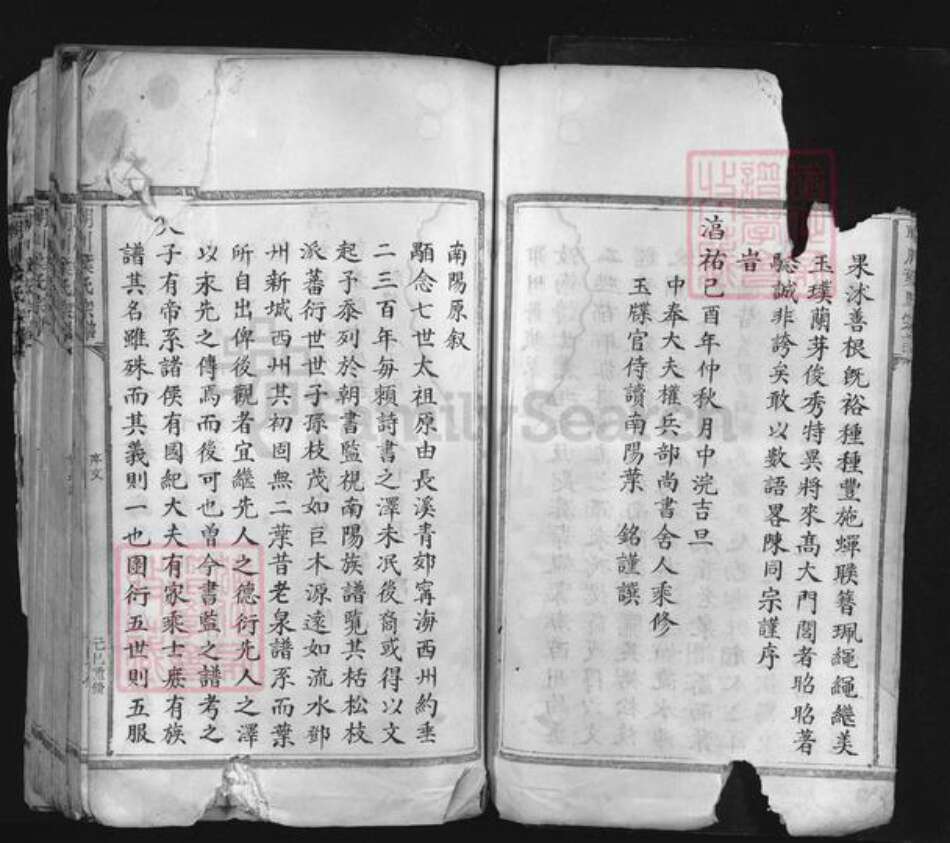 果沭善根旣裕種種豐施蟬聯簪珮繩繩繼美
玉璞蘭芽俊秀特異將來高大門閭者昭昭著
聽誠非誇矣敢以數語畧陳同宗謹序
旹
淯祐己酉年仲秋月中浣吉旦
中奉大夫權兵部尚書舍人乘修
玉牒官侍讀南陽葉 銘謹譔
南陽原叙
顒念七世太祖原由長溪青郊寧海西州約垂
二三百年每賴詩書之澤未泯後裔或得以文
起予忝列於朝書監視南陽族譜覽其枯松枝
派蕃衍世世子孫枝茂如巨木源遠如流水鄧
州新城西州其初固無二葉昔老泉譜系而葉
所自出俾後觀者宜繼先人之德衍先人之澤
以永先之傳焉而後可也曾今書監之譜考之
天子有帝系諸侯有國紀大夫有家乘士庶有族
譜其名雖殊而其義則一也圖衍五世則五服
序文
己巳重修
FamilySearch